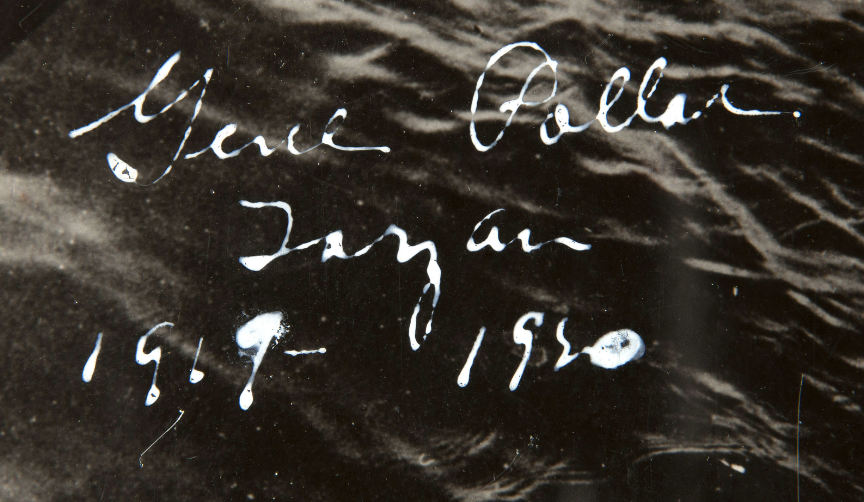 Gene Pollar
Tarzan
1919- 1920